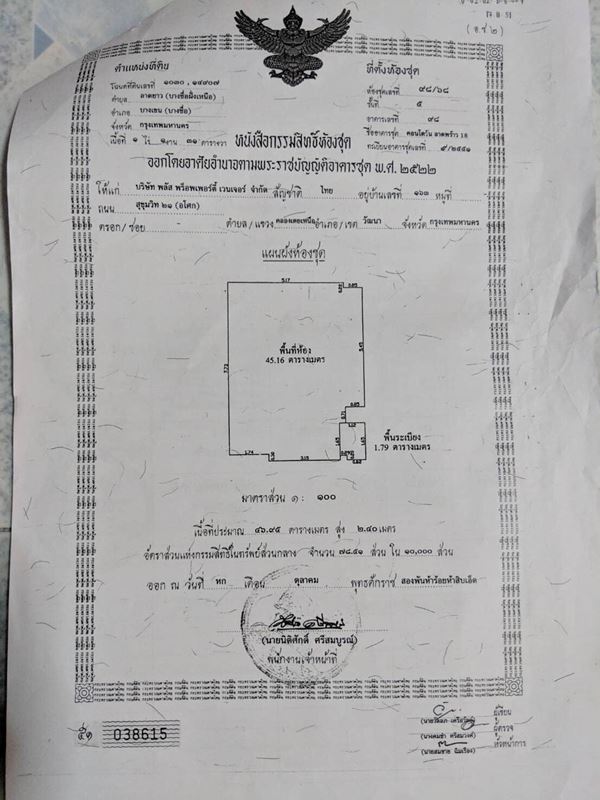 (อ.ช.๒)
ตำแหน่งที่ดิน
โฉนดที่ดินเลขที่ ๑๐๓๐, ๑๔๙๐๗
ตำบล ลาดยาว (บางซื่อฝั่งเหนือ)
อำเภอ บางเขน (บางซื่อ)
จังหวัด กรุงเทพมหานคร
เนื้อที่ ๑ ไร่ ๑ งาน ๓๑ ตารางวา
ที่ตั้งห้องชุด
ห้องชุดเลขที่ ๙๘/๖๘
ชั้นที่ ๕
อาคารเลขที่ ๙๘
ชื่ออาคารชุด คอนโดวัน ลาดพร้าว 18
ทะเบียนอาคารชุดเลขที่ ๙/๒๕๕๑
หนังสือกรรมสิทธิ์ห้องชุด
ออกโดยอาศัยอำนาจตามพระราชบัญญัติอาคารชุด พ.ศ. ๒๕๒๒
ให้แก่ บริษัท พลัส พร็อพเพอร์ตี้ เวนเจอร์ จำกัด สัญชาติ ไทย อยู่บ้านเลขที่ ๑๖๓ หมู่ที่
ถนน สุขุมวิท ๒๑ (อโศก)
ตรอก/ซอย ตำบล/แขวง คลองเตยเหนือ อำเภอ/เขต วัฒนา จังหวัด กรุงเทพมหานคร
แผนผังห้องชุด
5.17
พื้นที่ห้อง
45.16 ตารางเมตร
พื้นระเบียง
1.79 ตารางเมตร
มาตราส่วน ๑ : ๑๐๐
เนื้อที่ประมาณ ๔๖.๙๕ ตารางเมตร สูง ๒.๔๐ เมตร
อัตราส่วนแห่งกรรมสิทธิ์ในทรัพย์ส่วนกลาง จำนวน ๗๘.๕๑ ส่วน ใน ๑๐,๐๐๐ ส่วน
ออก ณ วันที่ หก เดือน ตุลาคม พุทธศักราช สองพันห้าร้อยห้าสิบเอ็ด
(นายนิติศักดิ์ ศรีสมบูรณ์)
พนักงานเจ้าหน้าที่
038615
ผู้เขียน
ผู้ตรวจ
หัวหน้าการ